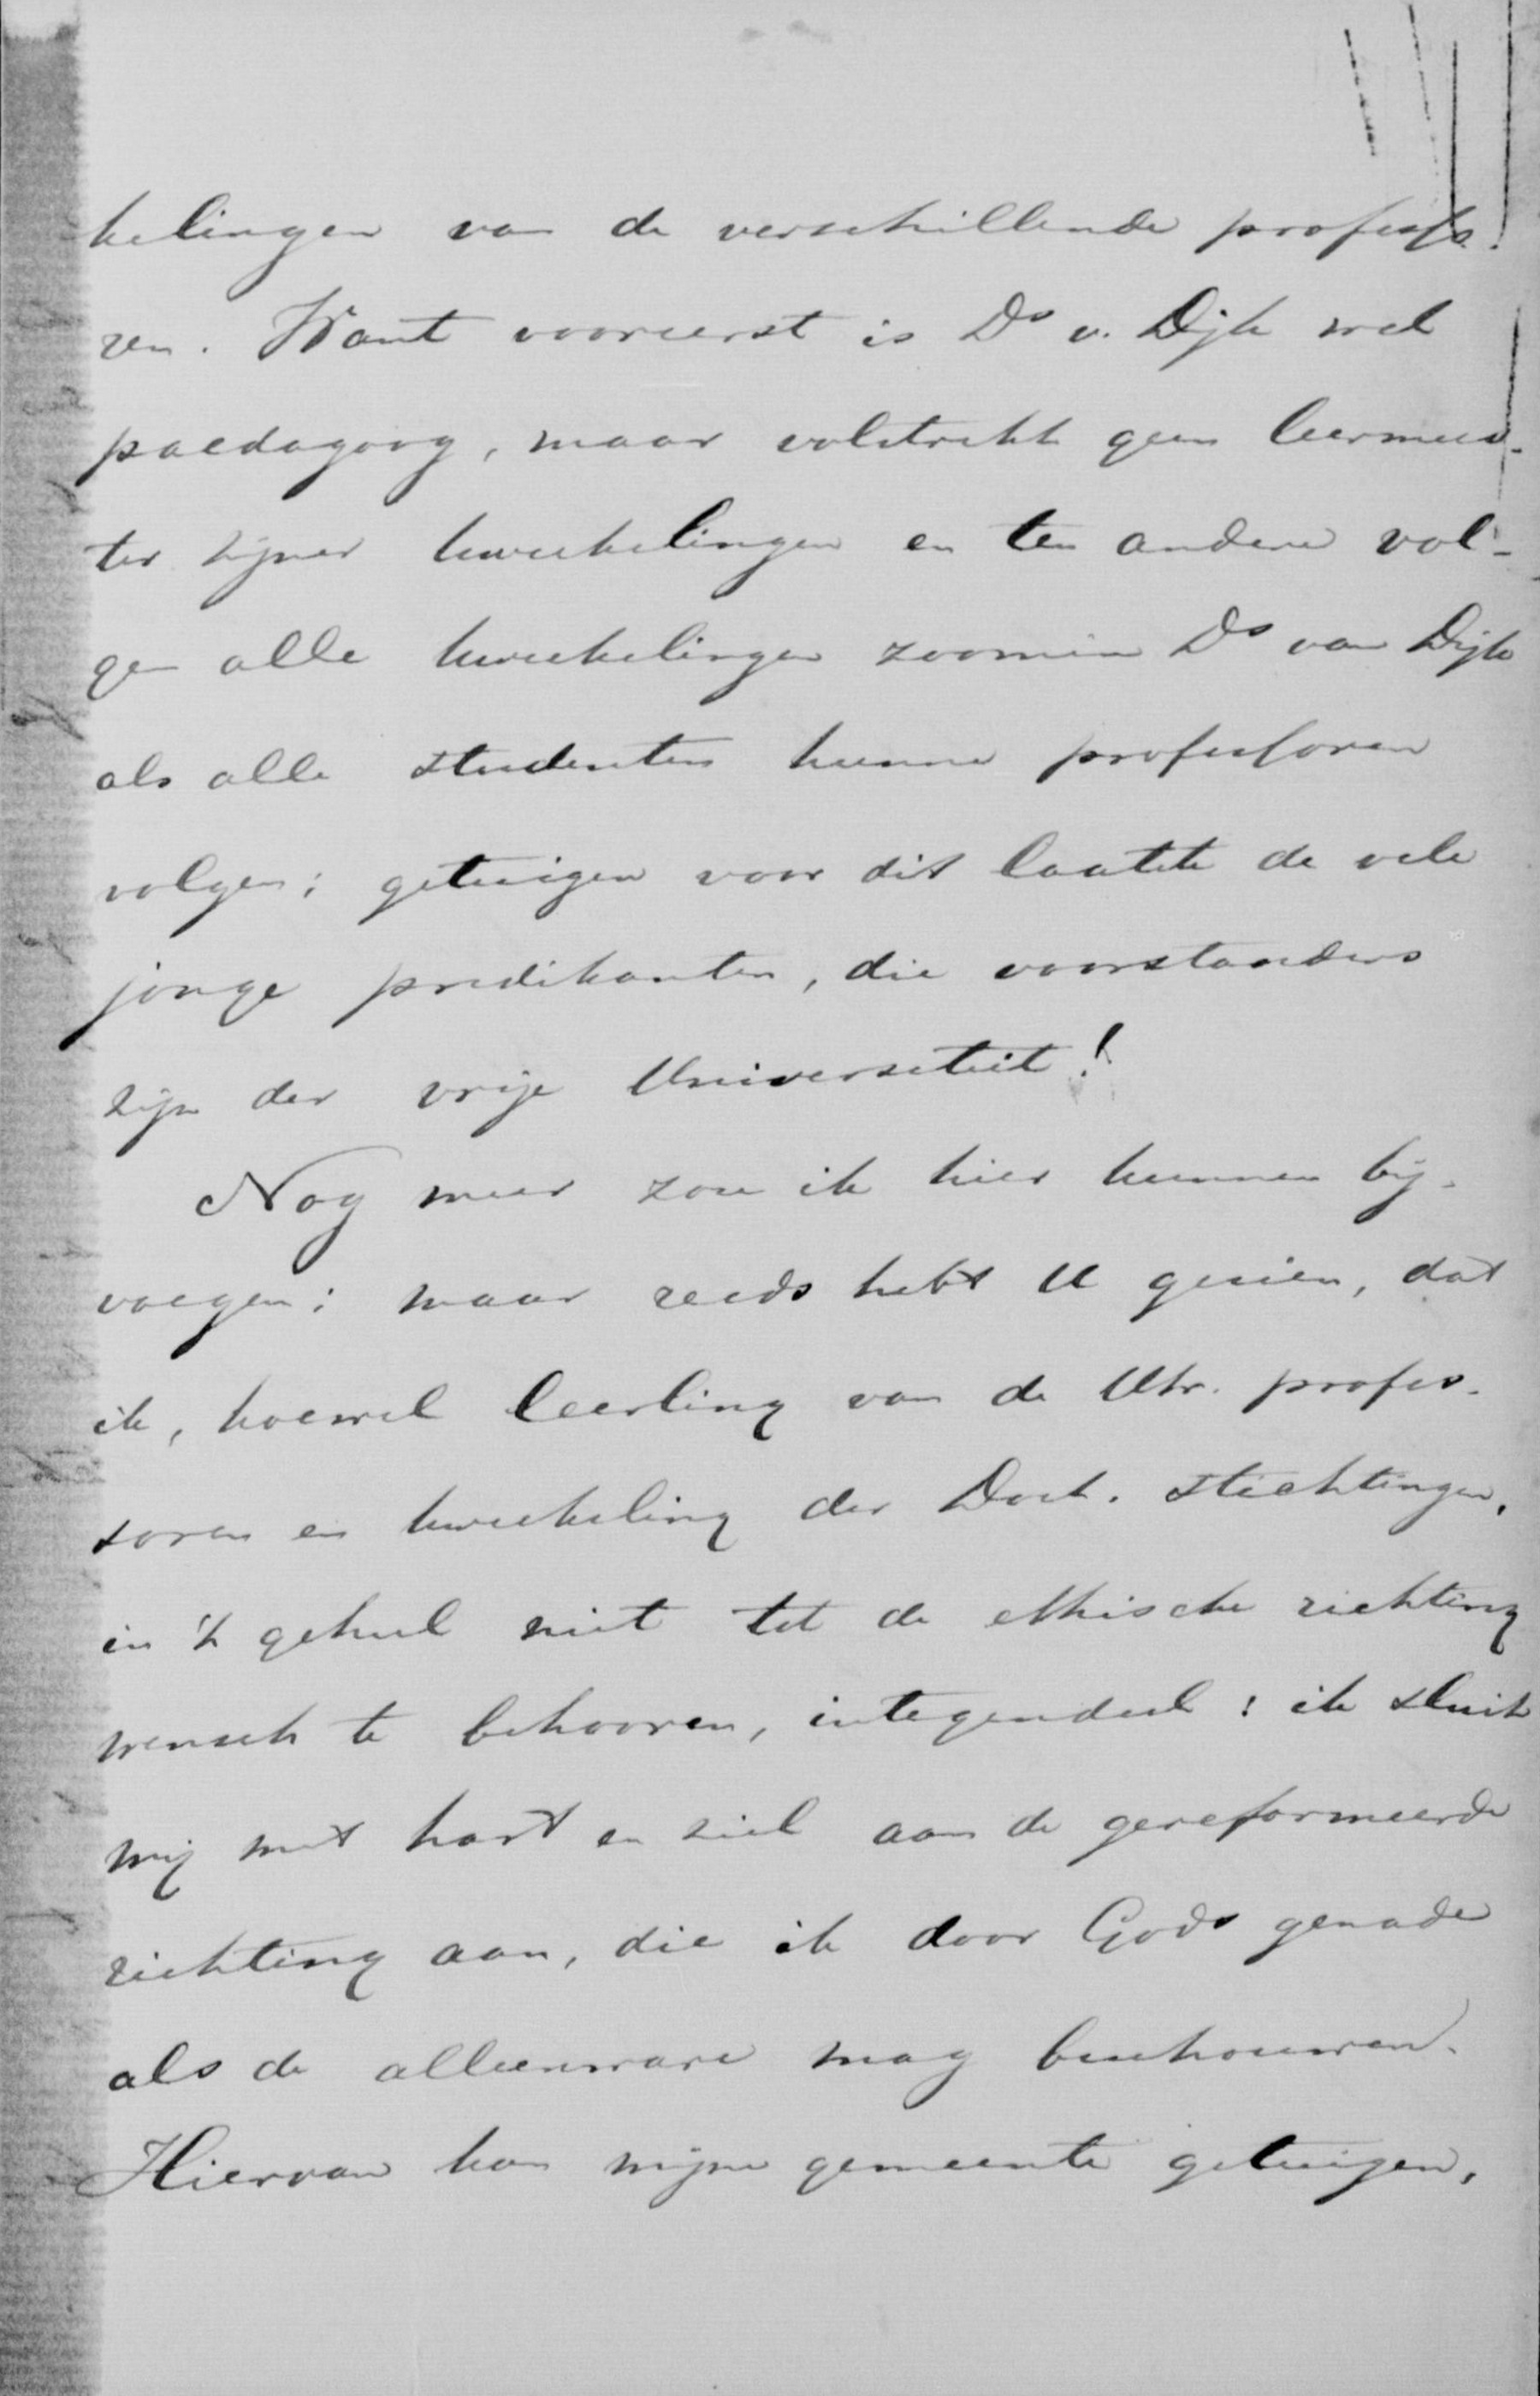 kelingen van de verschillende professo-
ren. Want vooreerst is Ds v. Dijk wel
paedagoog, maar volstrekt geen leermees-
ter zijner kweekelingen en ten andere vol-
gen alle kweekelingen zoomin Ds van Dijk
als alle studenten hunne professoren
volgen; getuigen voor dit laatste de vele
jonge predikanten, die voorstanders
zijn der vrije Universiteit!
Nog meer zou ik hier kunnen bij-
voegen; maar reeds hebt U gezien, dat
ik, hoewel leerling van de Utr. profes-
soren en kweekeling der Doet. stichtingen,
in 't geheel niet tot de ethische richting
wensch te behooren, integendeel: ik sluit
mij met hart en ziel aan de gereformeerde
richting aan, die ik door Gods genade
als de alleenware mag beschouwen.
Hiervan kan mijne gemeente getuigen,